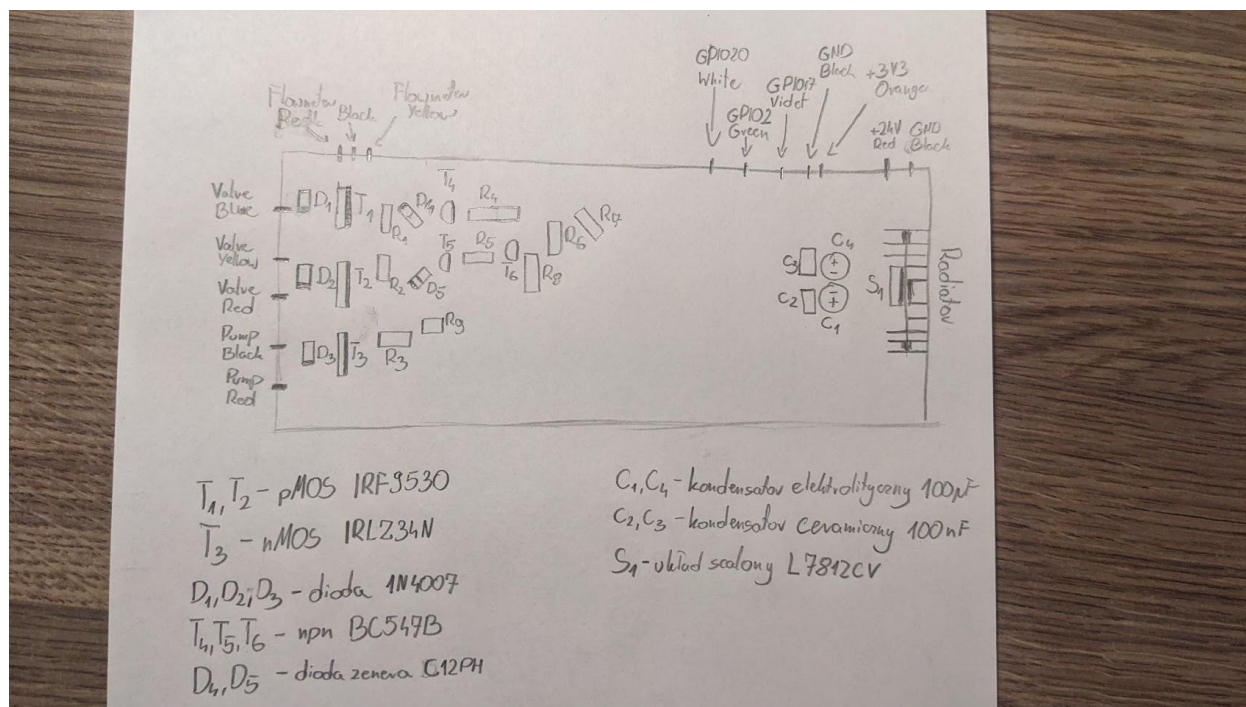 GPIO20
White
GPIO2
Green
GPIO17
Violet
GND
Black
+3V3
Orange
+24V
Red
GND
Black
Flowmeter
Red
Black
Flowmeter
Yellow
Valve
Blue
Valve
Yellow
Valve
Red
Pump
Black
Pump
Red
D1 T1 R1 D4 T4 R4
D2 T2 R2 D5 T5 R5 T6 R8 R6 R7
D3 T3 R3 R9
C3 C4
C2 C1
S1
Radiator
T1, T2 - pMOS IRF9530
T3 - nMOS IRLZ34N
D1, D2, D3 - dioda 1N4007
T4, T5, T6 - npn BC547B
D4, D5 - dioda zenera C12PH
C1, C4 - kondensator elektrolityczny 100µF
C2, C3 - kondensator ceramiczny 100nF
S1 - układ scalony L7812CV